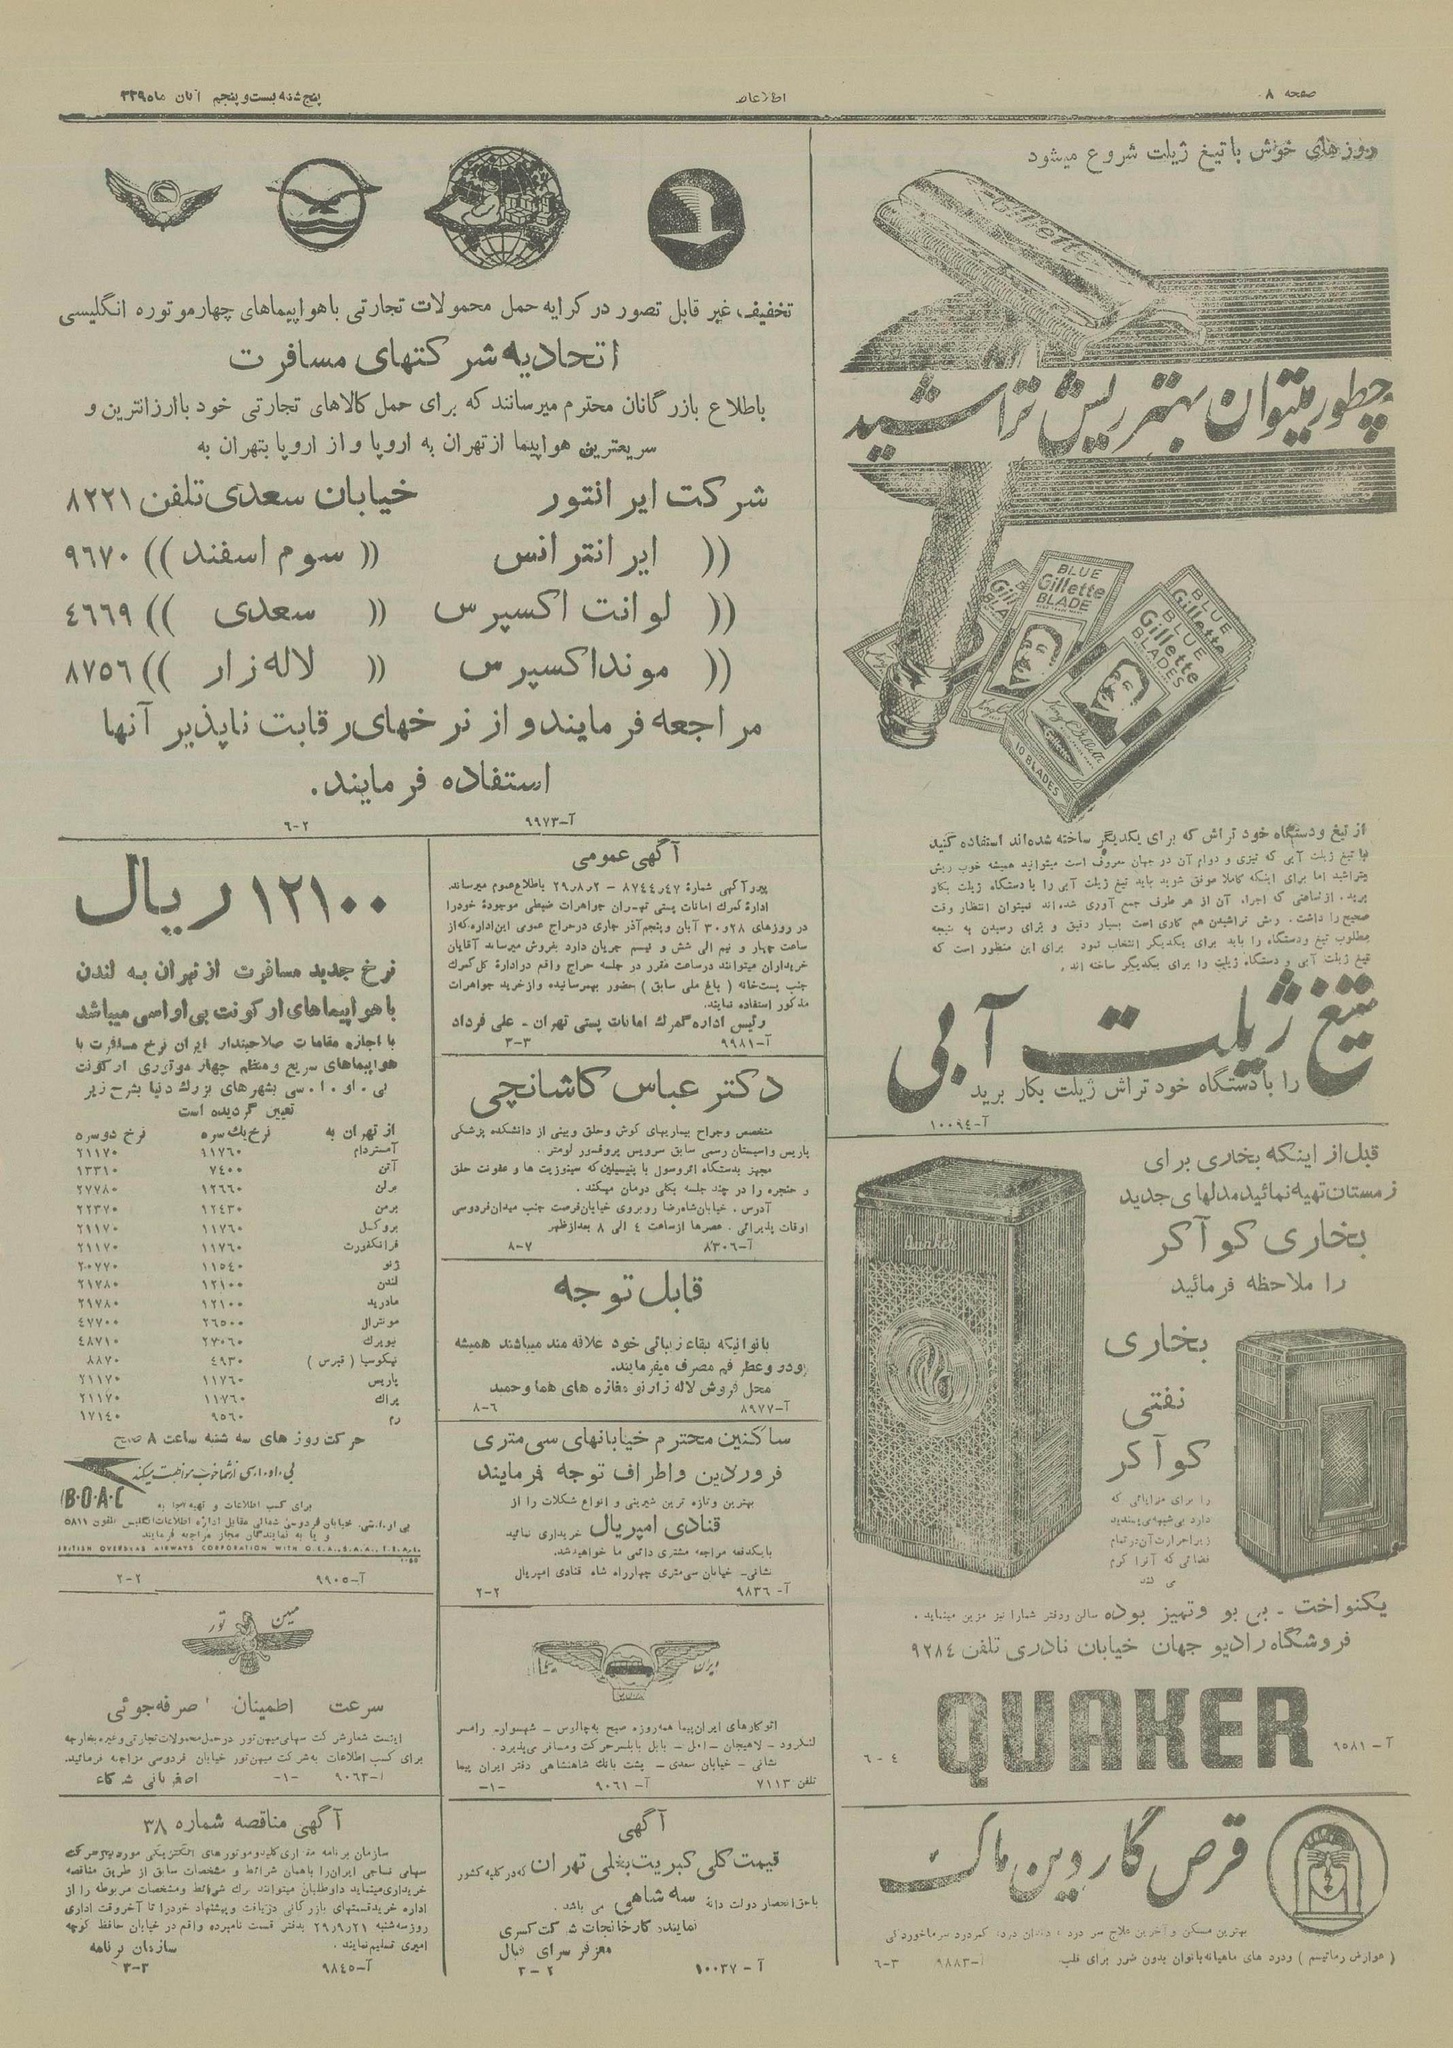 صفحه ۸
اطلاعات
پنج‌شنبه بیست و پنجم آبان ماه ۱۳۲۹
روزهای خوش با تیغ ژیلت شروع میشود
Gillette
چطور میتوان بهتر ریش تراشید
BLUE
Gillette
BLADE
BLUE
Gillette
BLUE
Gillette
BLADES
10 BLADES
از تیغ و دستگاه خود تراش که برای یکدیگر ساخته شده‌اند استفاده کنید
با تیغ ژیلت آبی که تیزی و دوام آن در جهان معروف است میتوانید همیشه خوب ریش
بتراشید اما برای اینکه کاملا موفق شوید باید تیغ ژیلت آبی را با دستگاه ژیلت بکار
برید. از ساعتی که اجزاء آن از هر طرف جمع آوری شده‌اند نمیتوان انتظار وقت
صحیح را داشت. ریش تراشیدن هم کاری است بسیار دقیق و برای رسیدن به نتیجه
مطلوب تیغ و دستگاه را باید برای یکدیگر انتخاب نمود برای این منظور است که
تیغ ژیلت آبی و دستگاه ژیلت را برای یکدیگر ساخته اند.
تیغ ژیلت آبی
را با دستگاه خود تراش ژیلت بکار برید
آ-۱۰۰۹۴
قبل از اینکه بخاری برای
زمستان تهیه نمائید مدلهای جدید
بخاری کوآکر
را ملاحظه فرمائید
Quaker
بخاری
نفتی
کوآکر
را برای مزایائی که
دارد بی‌شبهه می‌پسندید
زیرا حرارت آن در تمام
فضائی که آنرا گرم
می کند
یکنواخت - بی بو و تمیز بوده سالن و دفتر شما را نیز مزین مینماید.
فروشگاه رادیو جهان خیابان نادری تلفن ۹۲۸۴
QUAKER
آ-۹۵۸۱
۶-۴
قرص گاردین ماک
بهترین مسکن و آخرین علاج سر درد، دندان درد، کمردرد سرماخوردگی
(عوارض رماتیسم) و درد های ماهیانه بانوان بدون ضرر برای قلب
آ-۹۸۸۳ ۶-۳
تخفیف غیر قابل تصور در کرایه حمل محمولات تجارتی با هواپیماهای چهار موتوره انگلیسی
اتحادیه شرکتهای مسافرت
باطلاع بازرگانان محترم میرسانند که برای حمل کالاهای تجارتی خود با ارزانترین و
سریعترین هواپیما از تهران به اروپا و از اروپا بتهران به
شرکت ایرانتور خیابان سعدی تلفن ۸۲۲۱
(( ایرانترانس (( سوم اسفند )) ۹۶۷۰
(( لوانت اکسپرس (( سعدی )) ۴۶۶۹
(( مونداکسپرس (( لاله زار )) ۸۷۵۶
مراجعه فرمایند و از نرخهای رقابت ناپذیر آنها
استفاده فرمایند.
آ-۹۹۷۳ ۶-۲
آگهی عمومی
پیرو آگهی شماره ۸۷۴۴ر۴۷ - ۲ر۸ر۲۹ باطلاع عموم میرساند
اداره گمرک امانات پستی تهران جواهرات ضبطی موجوده خود را
در روزهای ۲۸ و ۳۰ آبان و پنجم آذر جاری در حراج عمومی این اداره که از
ساعت چهار و نیم الی شش و نیم جریان دارد بفروش میرساند آقایان
خریداران میتوانند در ساعت مقرر در جلسه حراج واقع در اداره کل گمرک
جنب پستخانه (باغ ملی سابق) حضور بهمرسانیده و از خرید جواهرات
مذکور استفاده نمایند.
رئیس اداره گمرک امانات پستی تهران - علی فرداد
آ-۹۹۸۱ ۳-۳
دکتر عباس کاشانچی
متخصص و جراح بیماریهای گوش و حلق و بینی از دانشکده پزشکی
پاریس و اسیستان رسمی سابق سرویس پروفسور لومتر.
مجهز بدستگاه ائروسول با پنیسیلین که سینوزیت ها و عفونت حلق
و حنجره را در چند جلسه بکلی درمان میکند.
آدرس. خیابان شاهرضا روبروی خیابان فرصت جنب میدان فردوسی
اوقات پذیرائی. عصرها از ساعت ۴ الی ۸ بعد از ظهر
آ-۸۳۰۶ ۸-۷
قابل توجه
بانوانیکه ببقاء زیبائی خود علاقه مند میباشند همیشه
پودر و عطر فم مصرف میفرمایند.
محل فروش لاله زار نو مغازه های هما و حمید
آ-۸۹۷۷ ۸-۶
ساکنین محترم خیابانهای سی متری
فروردین و اطراف توجه فرمایند
بهترین و تازه ترین شیرینی و انواع شکلات را از
قنادی امپریال خریداری نمائید
با یکدفعه مراجعه مشتری دائمی ما خواهید شد.
نشانی- خیابان سی متری چهارراه شاه قنادی امپریال
آ-۹۸۳۶ ۲-۲
ایران پیما
اتوکارهای ایران پیما همه روزه صبح به چالوس - شهسوار - رامسر
لنگرود - لاهیجان - آمل - بابل بابلسر حرکت و مسافر می‌پذیرد.
نشانی - خیابان سعدی - پشت بانک شاهنشاهی دفتر ایران پیما
تلفن ۷۱۱۳ آ-۹۰۶۱ -۱-
آگهی
قیمت کلی کبریت بغلی تهران که در کلیه کشور
با حق انحصار دولت دانه سه شاهی می باشد.
نماینده کارخانجات شرکت کسری
معزفر سرای قبال
آ-۱۰۰۳۷ ۳-۲
۱۲۱۰۰ ریال
نرخ جدید مسافرت از تهران به لندن
با هواپیماهای ارگونت بی او اسی میباشد
با اجازه مقامات صلاحیتدار ایران نرخ مسافرت با
هواپیماهای سریع و منظم چهار موتوری ارگونت
بی. او. ا. سی بشهرهای بزرگ دنیا بشرح زیر
تعیین گردیده است
از تهران به نرخ یک سره نرخ دوسره
آمستردام ۱۱۷۶۰ ۲۱۱۷۰
آتن ۷۴۰۰ ۱۳۳۱۰
برلن ۱۲۶۶۰ ۲۷۷۸۰
برمن ۱۲۴۳۰ ۲۲۳۷۰
بروکسل ۱۱۷۶۰ ۲۱۱۷۰
فرانکفورت ۱۱۷۶۰ ۲۱۱۷۰
ژنو ۱۱۵۴۰ ۲۰۷۷۰
لندن ۱۲۱۰۰ ۲۱۷۸۰
مادرید ۱۲۱۰۰ ۲۱۷۸۰
مونترال ۲۶۵۰۰ ۴۷۷۰۰
نیویورک ۲۷۰۶۰ ۴۸۷۱۰
نیکوسیا (قبرس) ۴۹۳۰ ۸۸۷۰
پاریس ۱۱۷۶۰ ۲۱۱۷۰
پراک ۱۱۷۶۰ ۲۱۱۷۰
رم ۹۵۶۰ ۱۷۱۴۰
حرکت روز های سه شنبه ساعت ۸ صبح
بی.او.ا.سی از شما خوب مواظبت میکند
B·O·A·C
برای کسب اطلاعات و تهیه جا به
بی او.ا.سی. خیابان فردوسی شمالی مقابل اداره اطلاعات انگلیس تلفون ۵۸۱۱
و یا به نمایندگان مجاز مراجعه فرمایند
BRITISH OVERSEAS AIRWAYS CORPORATION WITH
آ-۹۹۰۵ ۲-۲
میهن تور
سرعت اطمینان صرفه جوئی
اینست شعار شرکت سهامی میهن تور در حمل محمولات تجارتی و غیره بخارجه
برای کسب اطلاعات به شرکت میهن تور خیابان فردوسی مراجعه فرمائید.
آ-۹۰۶۳ -۱- اصغر بانی شرکاء
آگهی مناقصه شماره ۳۸
سازمان برنامه مقداری کلید و موتورهای الکتریکی مورد نیاز شرکت
سهامی نساجی ایران را با همان شرائط و مشخصات سابق از طریق مناقصه
خریداری مینماید داوطلبان میتوانند برگ شرائط و مشخصات مربوطه را از
اداره خرید قسمتهای بازرگانی دریافت و پیشنهاد خود را تا آخر وقت اداری
روز سه شنبه ۲۹ر۹ر۲۱ بدفتر قسمت نامبرده واقع در خیابان حافظ کوچه
امیری تسلیم نمایند.
سازمان برنامه
آ-۹۸۴۵ ۳-۳